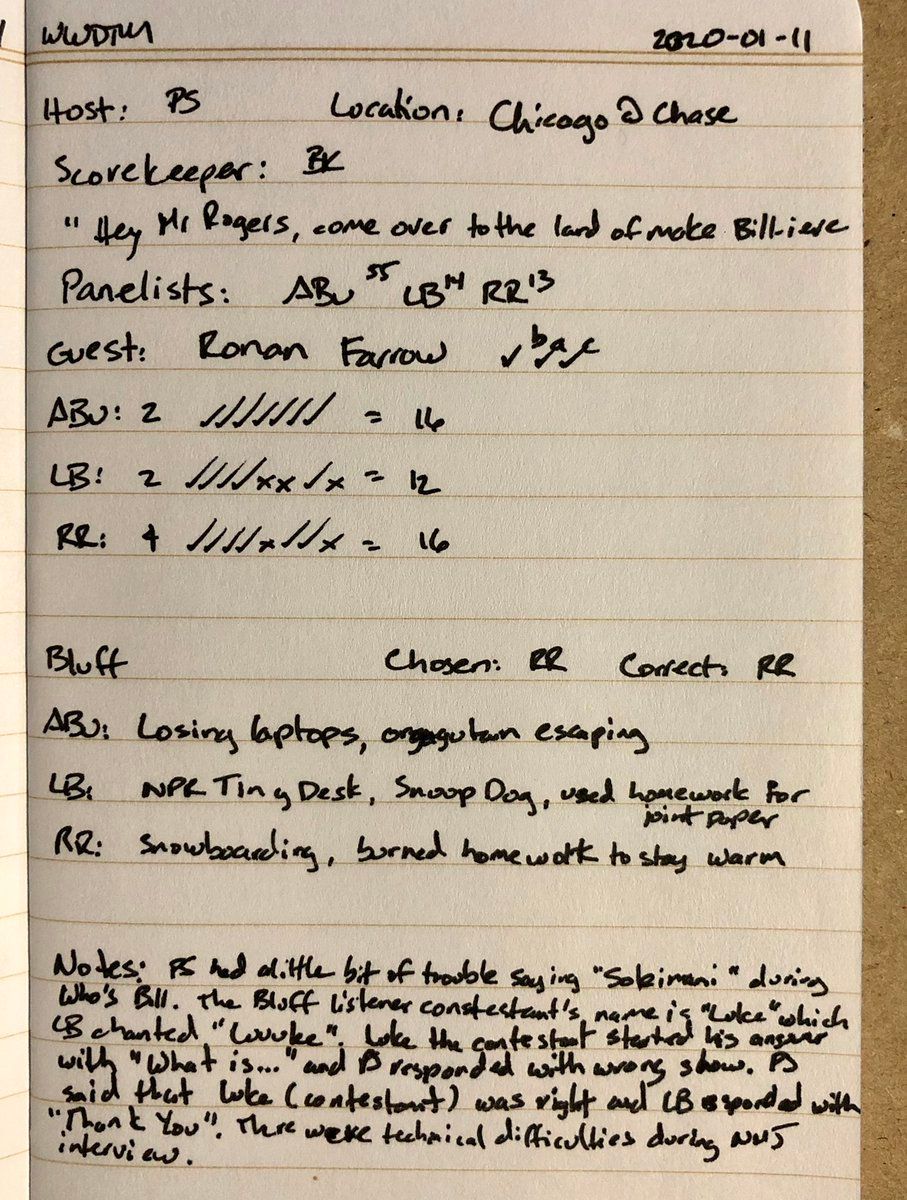 WWDTM 2020-01-11
Host: PS Location: Chicago @ Chase
Scorekeeper: BK
"Hey Mr Rogers, come over to the land of make Bill-ieve
Panelists: ABu 55 LB 14 RR 13
Guest: Ronan Farrow ✓b✓a✓c
ABu: 2 ✓✓✓✓✓✓✓ = 16
LB: 2 ✓✓✓✓xx✓x = 12
RR: 4 ✓✓✓✓x✓✓x = 16
Bluff Chosen: RR Correct: RR
ABu: Losing laptops, escaping
LB: NPR Tiny Desk, Snoop Dog, used homework for
joint paper
RR: Snowboarding, burned homework to stay warm
Notes: PS had a little bit of trouble saying "Soleimani" during
Who's Bill. The Bluff Listener constestant's name is "Luke" which
LB chanted "Luuuke". Luke the contestant started his answer
with "What is..." and PS responded with wrong show. PS
said that Luke (contestant) was right and LB esponded with
"Thank You". There were technical difficulties during NMJ
interview.